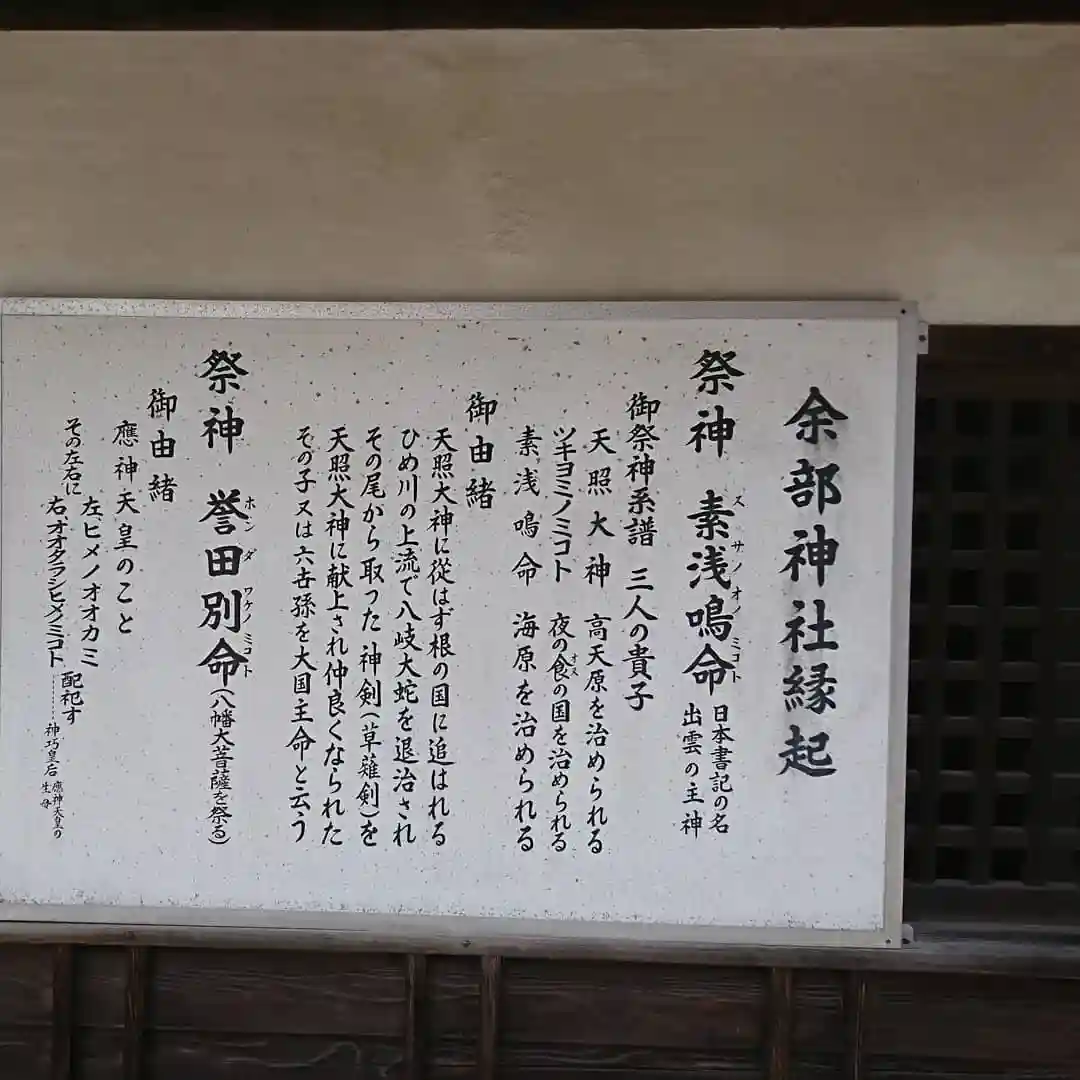 余部神社縁起
祭神 素浅鳴命 日本書記の名
スサノオノミコト
出雲の主神
御祭神系譜 三人の貴子
天照大神 高天原を治められる
ツキヨミノミコト 夜の食の国を治められる
オス
素浅鳴命 海原を治められる
御由緒
天照大神に従はず根の国に追はれる
ひめ川の上流で八岐大蛇を退治され
その尾から取った神剣(草薙剣)を
天照大神に献上され仲良くなられた
その子又は六世孫を大国主命と云う
祭神 誉田別命(八幡大菩薩を祭る)
ホンダワケノミコト
御由緒
應神天皇のこと
その左右に 左、ヒメノオオカミ
右、オオタラシヒメノミコト 配祀す
神巧皇后 應神天皇の
生母